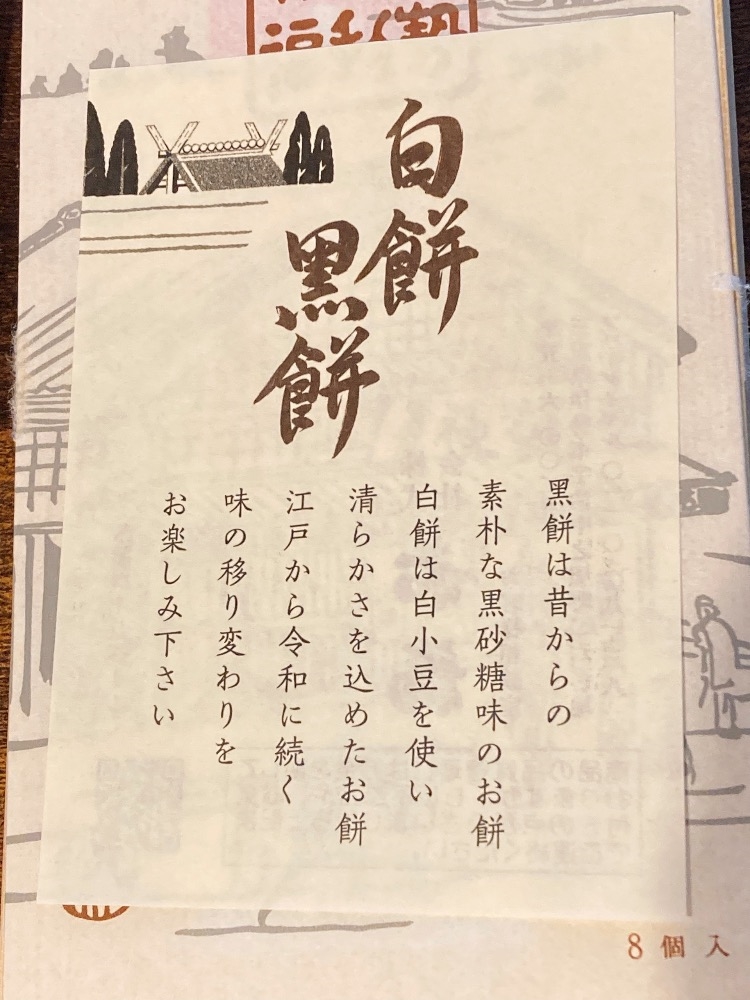 白餅
黒餅
黒餅は昔からの
素朴な黒砂糖味のお餅
白餅は白小豆を使い
清らかさを込めたお餅
江戸から令和に続く
味の移り変わりを
お楽しみ下さい
8個入